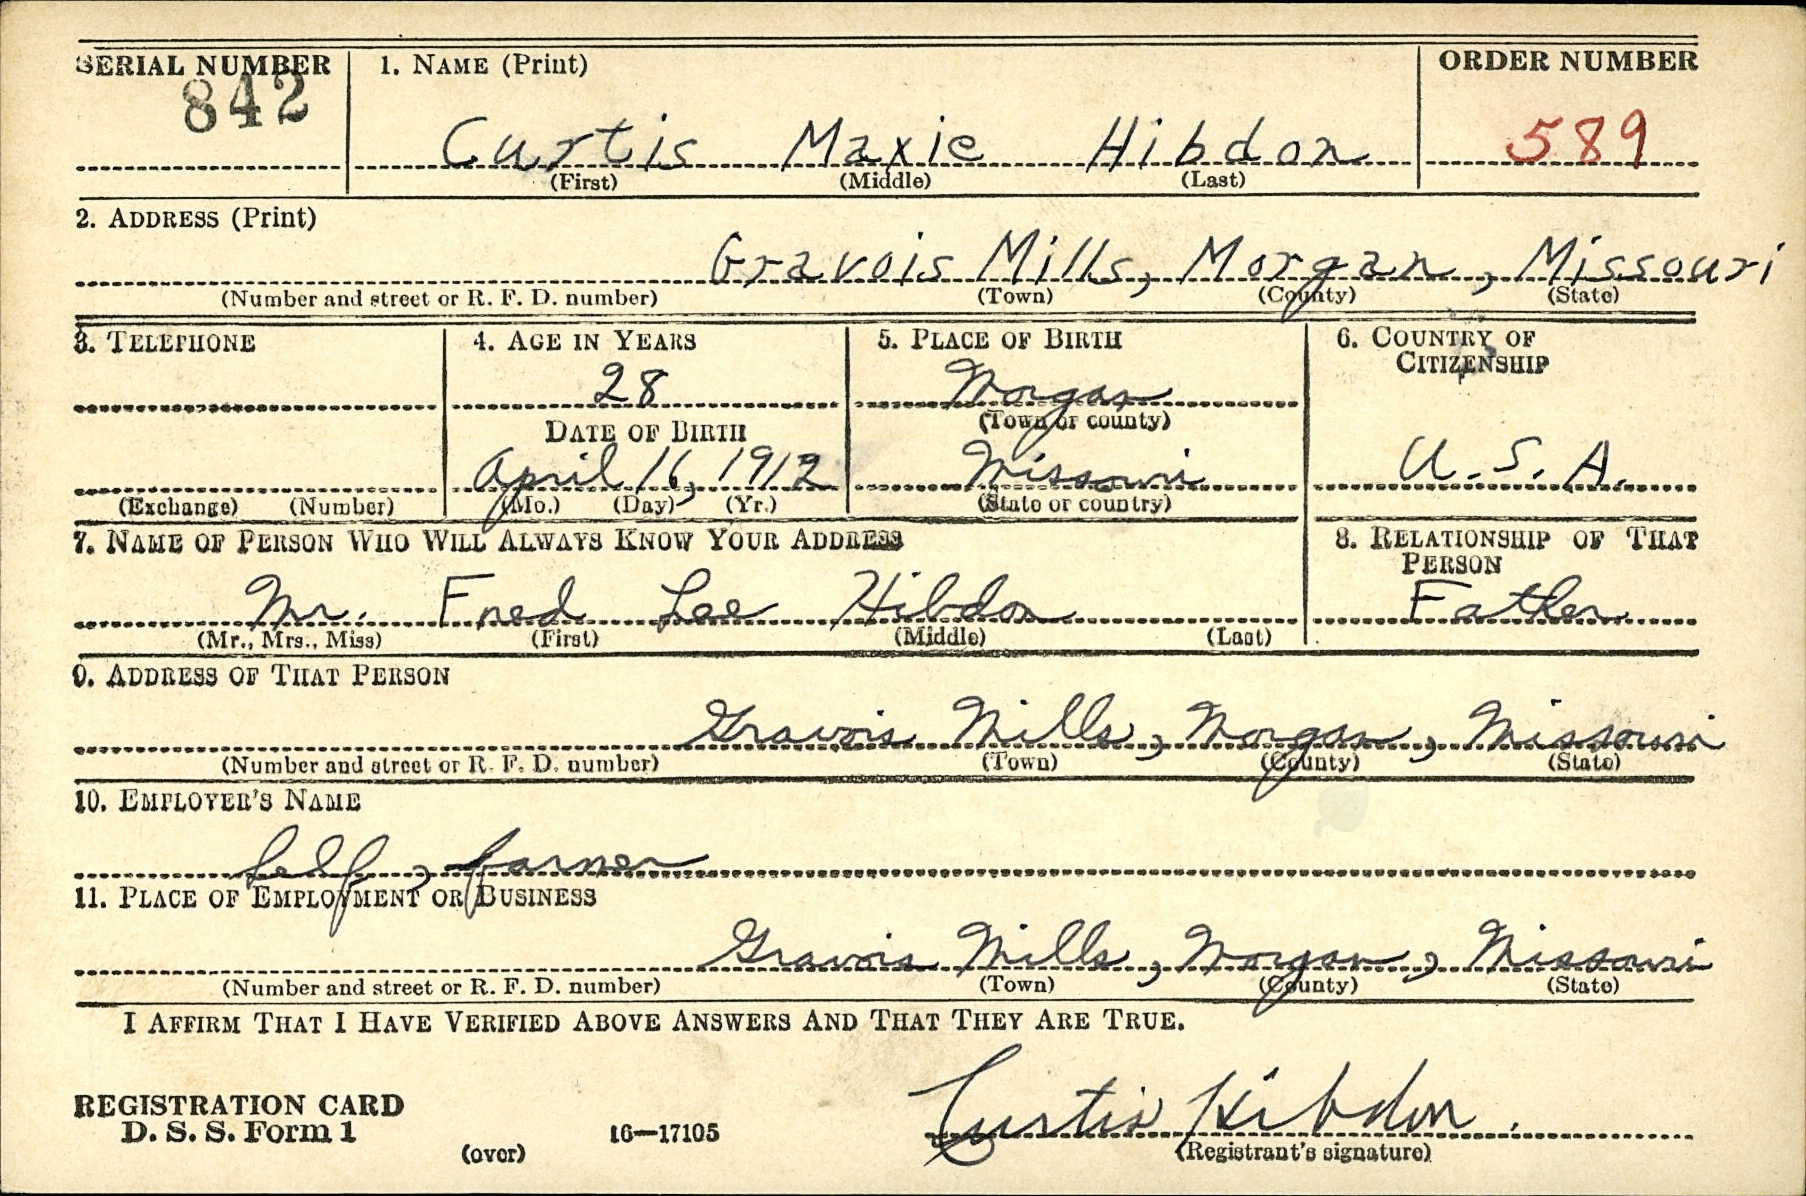 SERIAL NUMBER 1. NAME (Print) ORDER NUMBER
842 Curtis Maxie Hibdon 589
(First) (Middle) (Last)
2. ADDRESS (Print)
Gravois Mills, Morgan, Missouri
(Number and street or R. F. D. number) (Town) (County) (State)
3. TELEPHONE 4. AGE IN YEARS 5. PLACE OF BIRTH 6. COUNTRY OF CITIZENSHIP
28 Morgan
DATE OF BIRTH (Town or county)
April 16, 1912 Missouri U. S. A.
(Exchange) (Number) (Mo.) (Day) (Yr.) (State or country)
7. NAME OF PERSON WHO WILL ALWAYS KNOW YOUR ADDRESS 8. RELATIONSHIP OF THAT PERSON
Mr. Fred Lee Hibdon Father
(Mr., Mrs., Miss) (First) (Middle) (Last)
9. ADDRESS OF THAT PERSON
Gravois Mills, Morgan, Missouri
(Number and street or R. F. D. number) (Town) (County) (State)
10. EMPLOYER'S NAME
Self, farmer
11. PLACE OF EMPLOYMENT OR BUSINESS
Gravois Mills, Morgan, Missouri
(Number and street or R. F. D. number) (Town) (County) (State)
I AFFIRM THAT I HAVE VERIFIED ABOVE ANSWERS AND THAT THEY ARE TRUE.
Curtis Hibdon.
REGISTRATION CARD
D. S. S. Form 1 16—17105
(over) (Registrant's signature)